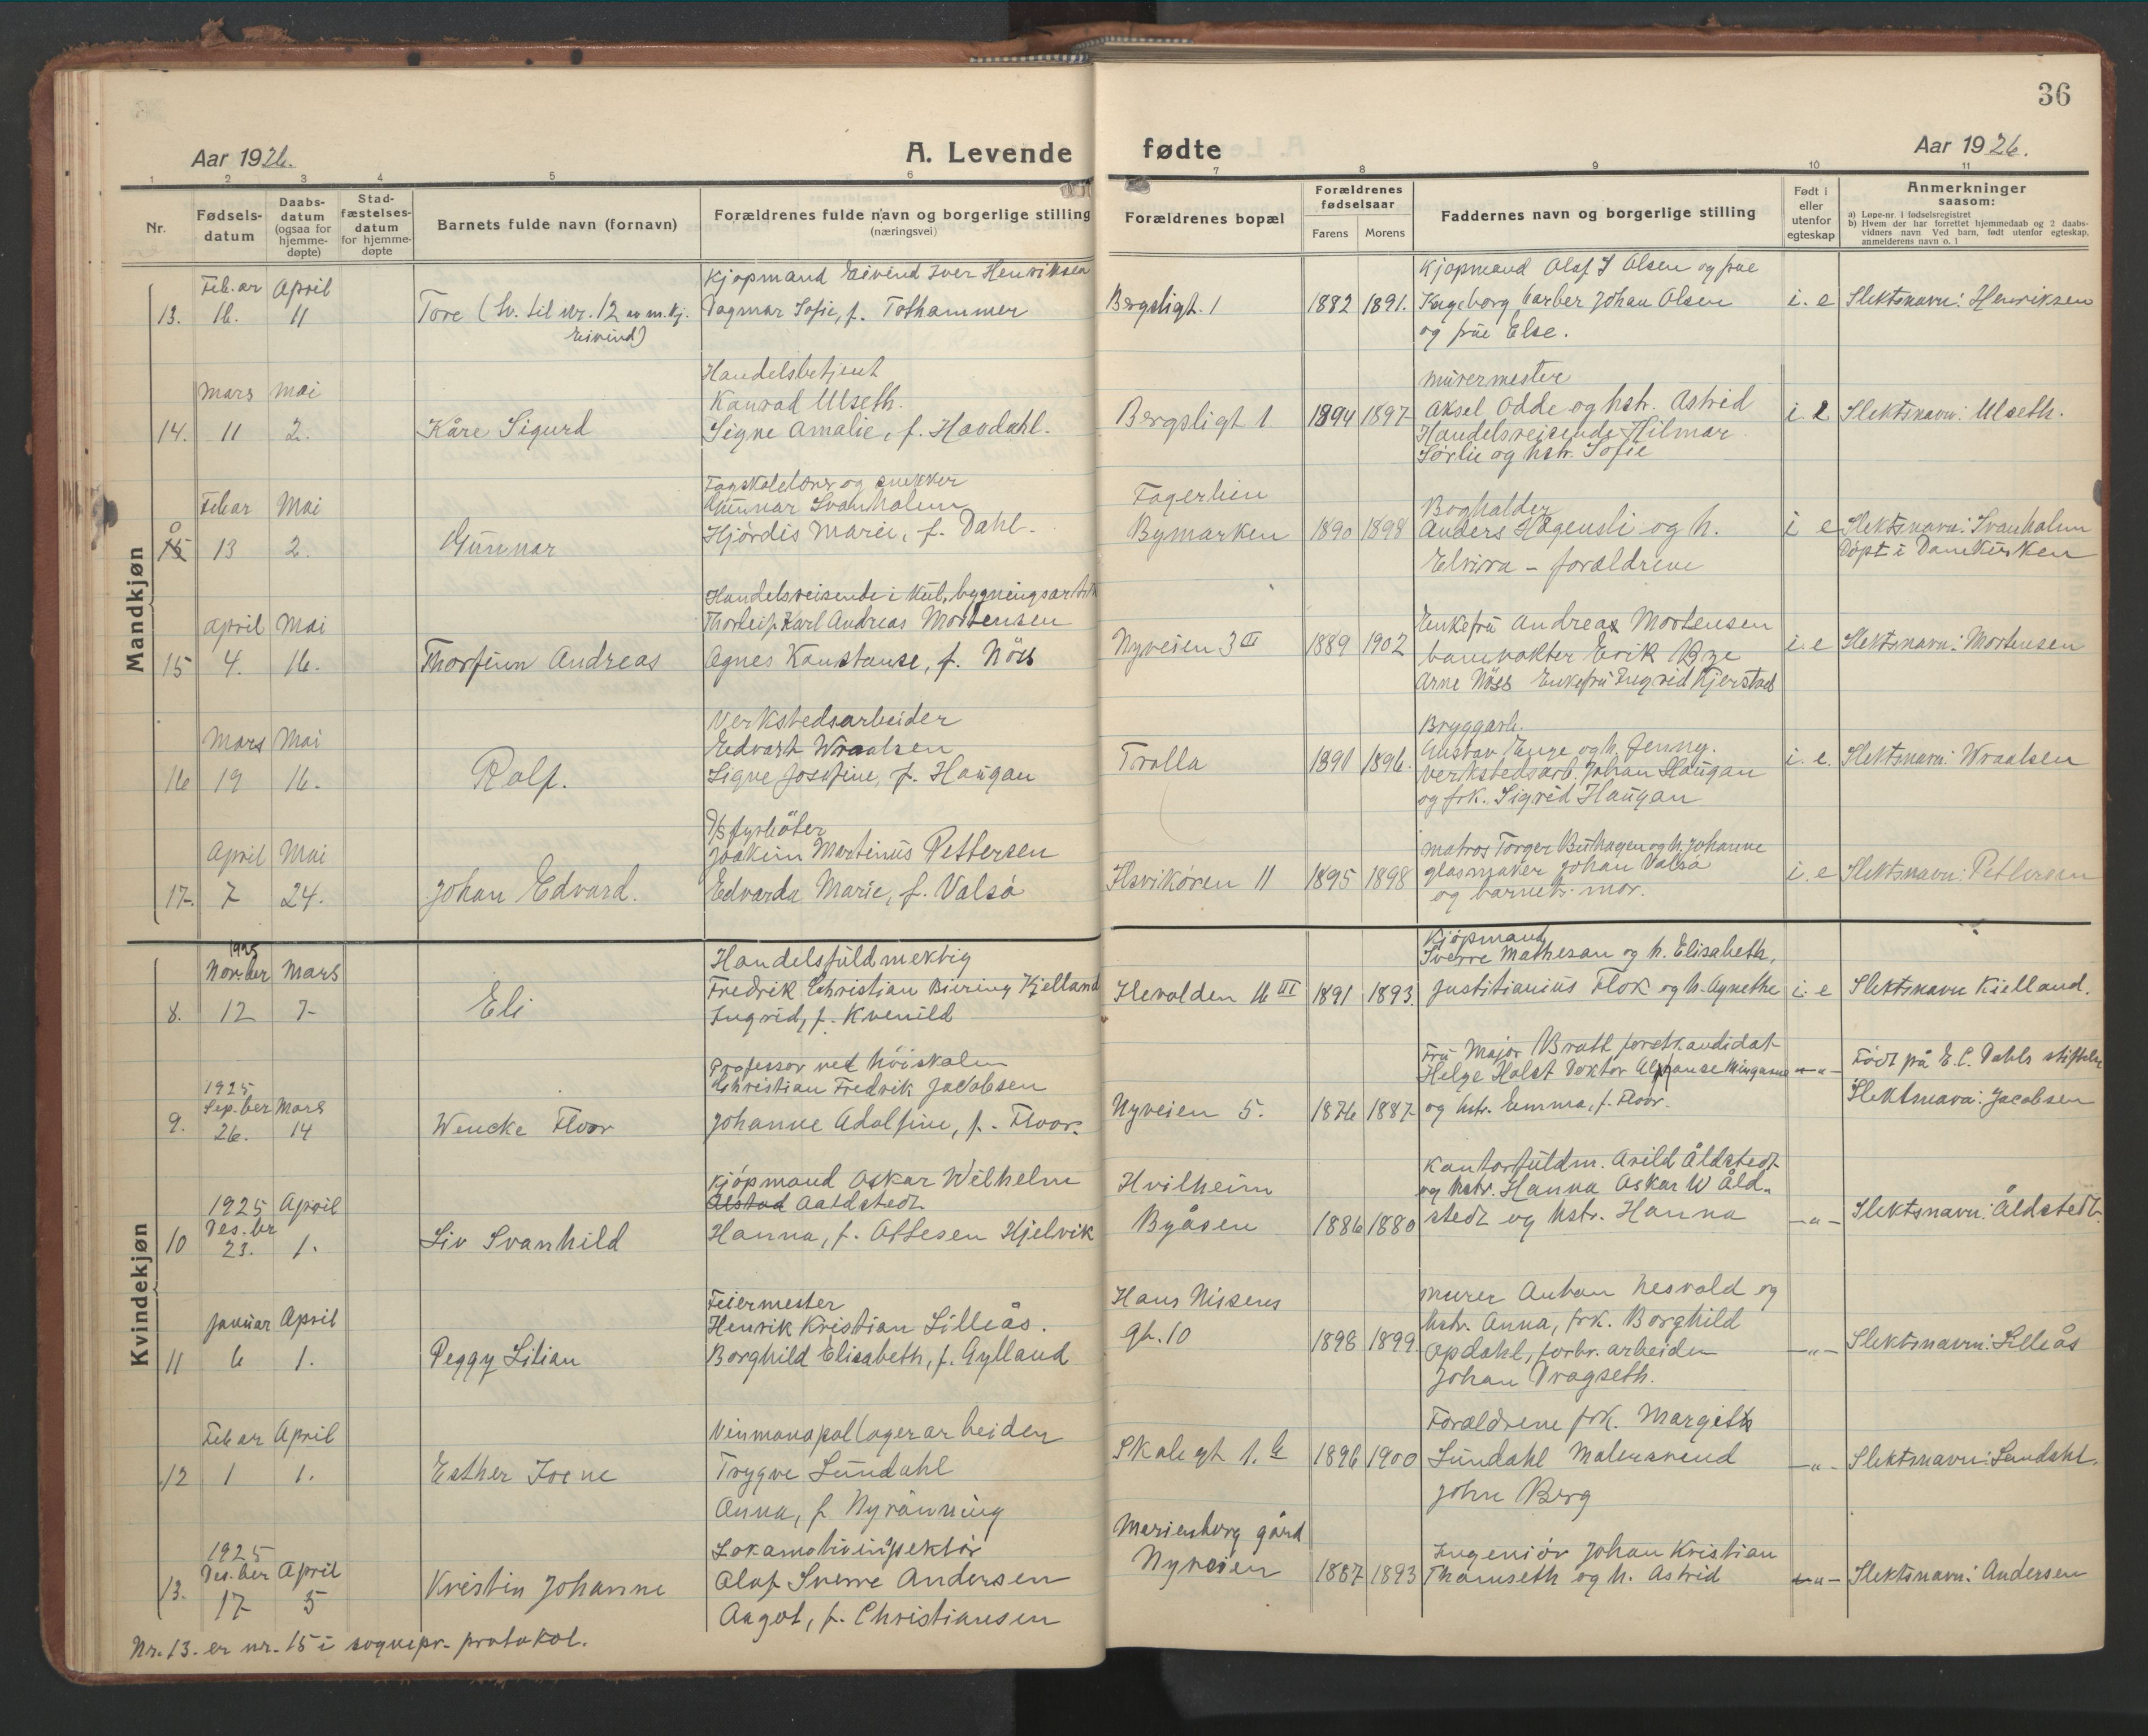 36
Aar 1926.
A. Levende
fødte
Aar 1926.
1 2 3 4 5 6 7 8 9 10 11
Nr.
Fødsels-
datum
Daabs-
datum
(ogsaa for
hjemme-
døpte)
Stad-
fæstelses-
datum
for hjemme-
døpte
Barnets fulde navn (fornavn)
Forældrenes fulde navn og borgerlige stilling
(næringsvei)
Forældrenes bopæl
Forældrenes
fødselsaar
Farens Morens
Faddernes navn og borgerlige stilling
Født i
eller
utenfor
egteskap
Anmerkninger
saasom:
a) Løpe-nr. i fødselsregistret
b) Hvem der har forrettet hjemmedaab og 2 daabs-
vidners navn Ved barn, født utenfor egteskap,
anmelderens navn o. l
Mandkjøn
13.
Feb.ar April
16. 11
Tore (tv. til nr. 12 av m.kj.
Eivind)
Kjøpmand Eivind Iver Henriksen
Dagmar Sofie, f. Tothammer
Bergsligt. 1
1882 1891.
Kjøpmand Olaf I Olsen og frue
Ingeborg, barber Johan Olsen
og frue Else.
i. e
Slektsnavn: Henriksen
14.
Mars Mai
11 2.
Kåre Sigurd
Handelsbetjent
Konrad Ulseth.
Signe Amalie, f. Hovdahl.
Bergsligt 1
1894 1897
Murermester
Aksel Odde og hstr. Astrid
Handelsreisende Hilmar
Sørlie og hstr. Sofie
i e
Slektsnavn: Ulseth.
15 Å
Feb.ar Mai
13 2.
Gunnar
Fagskolelærer og snekker
Gunnar Svanholm
Hjørdis Marie, f. Dahl.
Fagerlien
Bymarken
1890 1898
Bogholder
Anders Hagensli og h.
Elvira - forældrene
i e
Slektsnavn: Svanholm
Døpt i Domkirken
15
April Mai
4. 16.
Thorfinn Andreas
Handelsreisende i Kul, bygningsartik
Thorleif Karl Andreas Mortensen
Agnes Konstanse, f. Nöss
Nyveien 3 II
1889 1902
Enkefru Andreas Mortensen
banevokter Erik Bye
Arne Nöss Enkefru Ingrid Kjerstad
i. e
Slektsnavn: Mortensen
16
Mars Mai
19 16.
Rolf.
Verkstedsarbeider
Edvart Wraalsen
Signe Josefine, f. Haugan
Trolla
1891 1896.
Bryggarb.
Gustav Enge og h. Jenny.
Verkstedsarb. Johan Haugan
og frk. Sigrid Haugan
i. e.
Slektsnavn: Wraalsen
17.
April Mai
7 24.
Johan Edvard.
D/s fyrbøter
Joakim Martinus Pettersen
Edvarda Marie, f. Valsö
Ilsvikøren 11
1895 1898
Matros Torger Buhagen og h. Johanne
glasmaker Johan Valsö
og barnets mor.
i. e
Slektsnavn: Pettersen
Kvindekjøn
8.
1925
Nov.ber Mars
12 7
Eli
Handelsfuldmektig
Fredrik Christian Biering Kjelland
Ingrid, f. Kvenild
Ilevolden 16 III
1891 1893.
Kjøpmand
Sverre Matheson og h. Elisabeth,
Justitiarius Flok og h. Agnethe
i. e
Slektsnavn Kielland.
9.
1925
Sep.ber Mars
26. 14
Wencke Floor
Professor ved Höiskolen
Christian Fredrik Jacobsen
Johanne Adolfine, f. Floor.
Nyveien 5.
1876 1887
Fru Major Bratt, forstkandidat
Helge Holst Doktor
og hstr. Emma, f. Floor.
-"-
Født på E. C. Dahls stiftelse
Slektsnavn: Jacobsen
10
1925 April
Des.br
23. 1.
Liv Svanhild
Kjöpmand Oskar Wilhelm
Alstad Aaldstedt
Hanna, f. Ottesen Hjelvik
Hvilheim
Byåsen
1886 1880
Kontorfuldm. Arild Åldstedt
og hstr. Hanna Oskar W Åld-
stedt og hstr. Hanna
-"-
Slektsnavn: Åldstedt.
11
Januar April
6 1.
Peggy Lilian
Feiermester
Henrik Kristian Lilleås.
Borghild Elisabeth, f. Gylland
Hans Nissens
gt. 10
1898 1899.
Murer Anton Nesvold og
hstr. Anna, frk. Borghild
Opdahl, forbr. arbeider
Johan Dragseth.
-"-
Slektsnavn: Lilleås
12
Feb.ar April
1 1.
Esther Irene
Vinmonopollagerarbeider
Trygve Lundahl
Anna, f. Nyrönning
Skolegt 1. b
1896 1900
Forældrene frk. Margith
Lundahl Malersvend
John Berg
-"-
Slektsnavn: Lundahl.
13.
1925
Des.ber April
17 5
Kristin Johanne
Lokomotivinspektör
Olaf Sverre Andersen
Aagot, f. Christiansen
Marienborg gård
Nyveien
1887 1893
Ingeniör Johan Kristian
Thomseth og h. Astrid
-"-
Slektsnavn: Andersen
Nr. 13. er nr. 15 i sognepr. protokol.